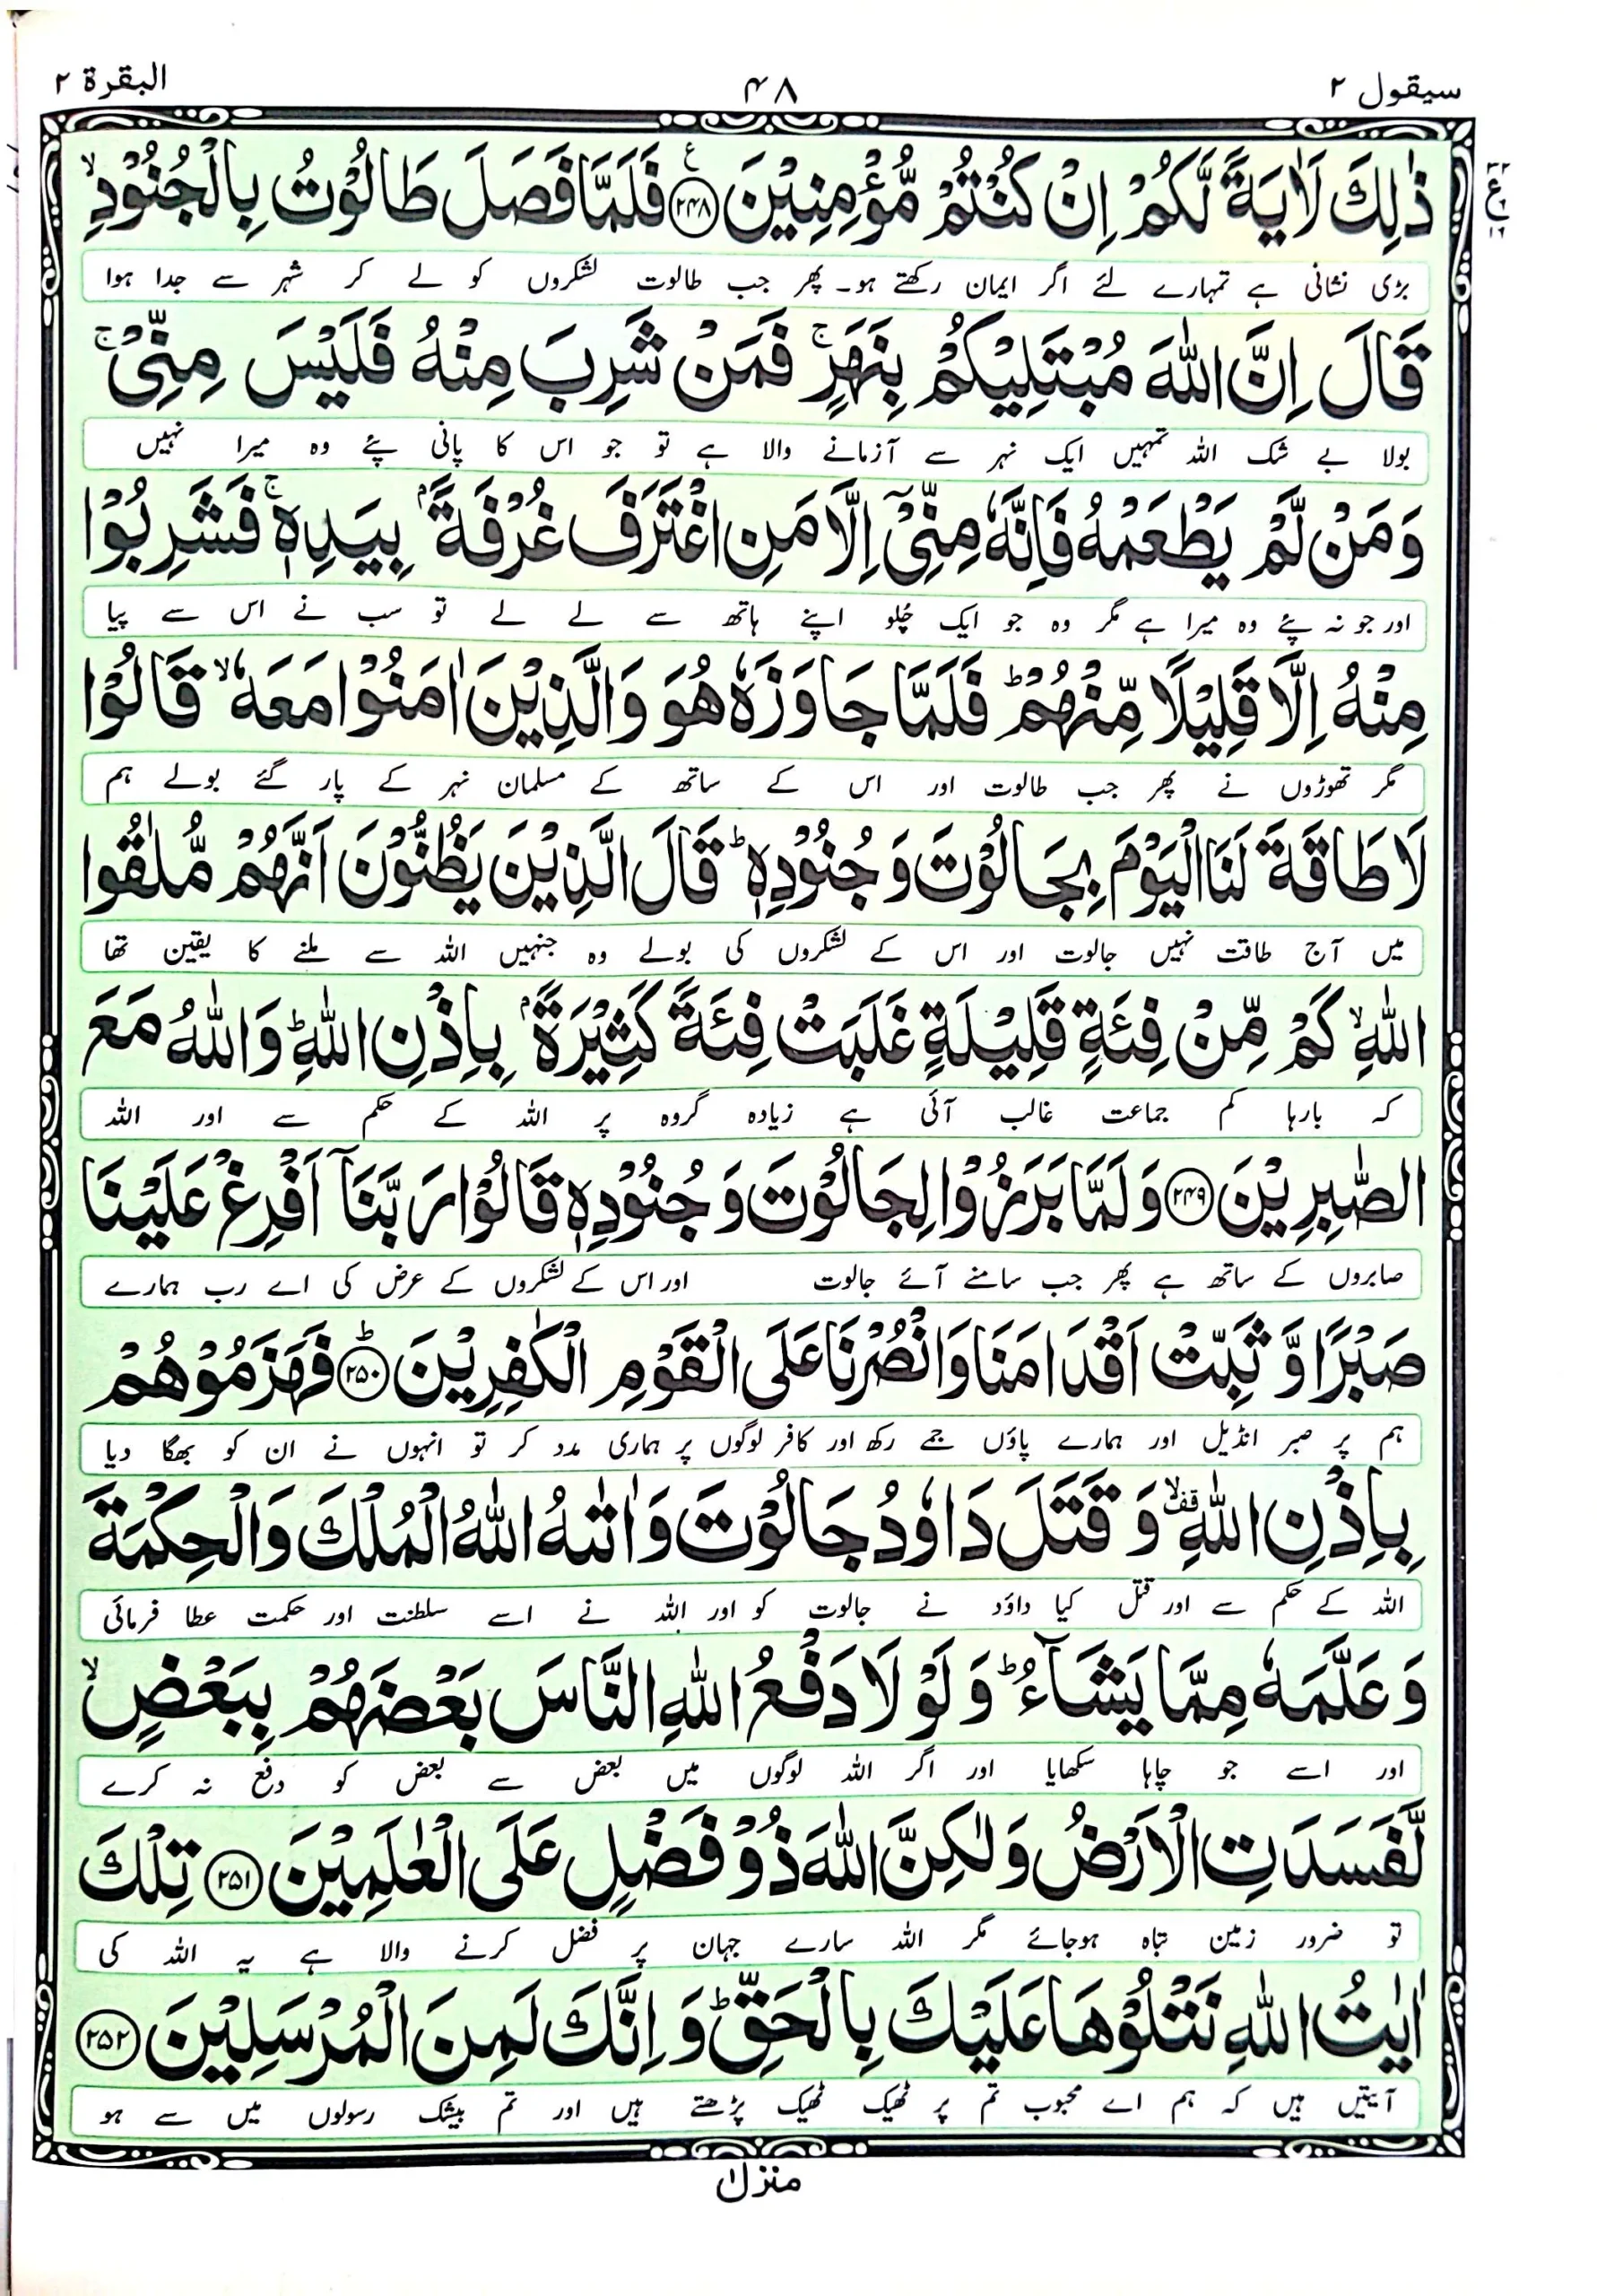 سیقول ۲
۴۸
البقرة ۲
ذٰلِكَ لَاٰيَةً لَّكُمْ اِنْ كُنْتُمْ مُّؤْمِنِيْنَ ﴿۲۴۸﴾ ع فَلَمَّا فَصَلَ طَالُوْتُ بِالْجُنُوْدِ ۙ
بڑی نشانی ہے تمہارے لئے اگر ایمان رکھتے ہو۔ پھر جب طالوت لشکروں کو لے کر شہر سے جدا ہوا
قَالَ اِنَّ اللّٰهَ مُبْتَلِيْكُمْ بِنَهَرٍ ۚ فَمَنْ شَرِبَ مِنْهُ فَلَيْسَ مِنِّيْ ۚ
بولا بے شک اللہ تمہیں ایک نہر سے آزمانے والا ہے تو جو اس کا پانی پئے وہ میرا نہیں
وَمَنْ لَّمْ يَطْعَمْهُ فَاِنَّهٗ مِنِّيْٓ اِلَّا مَنِ اغْتَرَفَ غُرْفَةًۢ بِيَدِهٖ ۚ فَشَرِبُوْا
اور جو نہ پئے وہ میرا ہے مگر وہ جو ایک چُلو اپنے ہاتھ سے لے لے تو سب نے اس سے پیا
مِنْهُ اِلَّا قَلِيْلًا مِّنْهُمْ ؕ فَلَمَّا جَاوَزَهٗ هُوَ وَالَّذِيْنَ اٰمَنُوْا مَعَهٗ ۙ قَالُوْا
مگر تھوڑوں نے پھر جب طالوت اور اس کے ساتھ کے مسلمان نہر کے پار گئے بولے ہم
لَا طَاقَةَ لَنَا الْيَوْمَ بِجَالُوْتَ وَجُنُوْدِهٖ ؕ قَالَ الَّذِيْنَ يَظُنُّوْنَ اَنَّهُمْ مُّلٰقُوا
میں آج طاقت نہیں جالوت اور اس کے لشکروں کی بولے وہ جنہیں اللہ سے ملنے کا یقین تھا
اللّٰهِ ۙ كَمْ مِّنْ فِئَةٍ قَلِيْلَةٍ غَلَبَتْ فِئَةً كَثِيْرَةًۢ بِاِذْنِ اللّٰهِ ؕ وَاللّٰهُ مَعَ
کہ بارہا کم جماعت غالب آئی ہے زیادہ گروہ پر اللہ کے حکم سے اور اللہ
الصّٰبِرِيْنَ ﴿۲۴۹﴾ وَلَمَّا بَرَزُوْا لِجَالُوْتَ وَجُنُوْدِهٖ قَالُوْا رَبَّنَآ اَفْرِغْ عَلَيْنَا
صابروں کے ساتھ ہے پھر جب سامنے آئے جالوت اور اس کے لشکروں کے عرض کی اے رب ہمارے
صَبْرًا وَّ ثَبِّتْ اَقْدَامَنَا وَانْصُرْنَا عَلَى الْقَوْمِ الْكٰفِرِيْنَ ﴿۲۵۰﴾ ؕ فَهَزَمُوْهُمْ
ہم پر صبر انڈیل اور ہمارے پاؤں جمے رکھ اور کافر لوگوں پر ہماری مدد کر تو انہوں نے ان کو بھگا دیا
بِاِذْنِ اللّٰهِ ۙ قف وَ قَتَلَ دَاوٗدُ جَالُوْتَ وَاٰتٰىهُ اللّٰهُ الْمُلْكَ وَالْحِكْمَةَ
اللہ کے حکم سے اور قتل کیا داؤد نے جالوت کو اور اللہ نے اسے سلطنت اور حکمت عطا فرمائی
وَعَلَّمَهٗ مِمَّا يَشَآءُ ؕ وَلَوْ لَا دَفْعُ اللّٰهِ النَّاسَ بَعْضَهُمْ بِبَعْضٍ ۙ
اور اسے جو چاہا سکھایا اور اگر اللہ لوگوں میں بعض سے بعض کو دفع نہ کرے
لَّفَسَدَتِ الْاَرْضُ وَلٰكِنَّ اللّٰهَ ذُوْ فَضْلٍ عَلَى الْعٰلَمِيْنَ ﴿۲۵۱﴾ تِلْكَ
تو ضرور زمین تباہ ہوجائے مگر اللہ سارے جہان پر فضل کرنے والا ہے یہ اللہ کی
اٰيٰتُ اللّٰهِ نَتْلُوْهَا عَلَيْكَ بِالْحَقِّ ؕ وَ اِنَّكَ لَمِنَ الْمُرْسَلِيْنَ ﴿۲۵۲﴾
آیتیں ہیں کہ ہم اے محبوب تم پر ٹھیک ٹھیک پڑھتے ہیں اور تم بیشک رسولوں میں سے ہو
منزل ۱